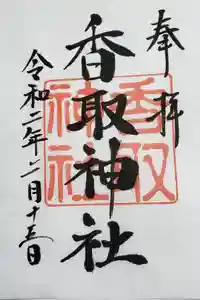 奉拝
香取神社
令和二年二月十五日
香取
神社